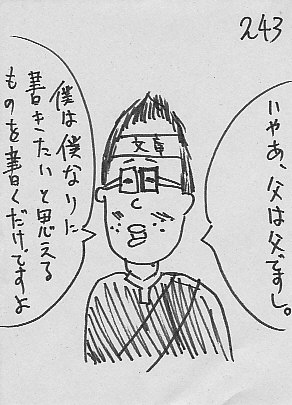 243
いやあ、父は父ですし。
文章
僕は僕なりに
書きたいと思える
ものを書くだけですよ